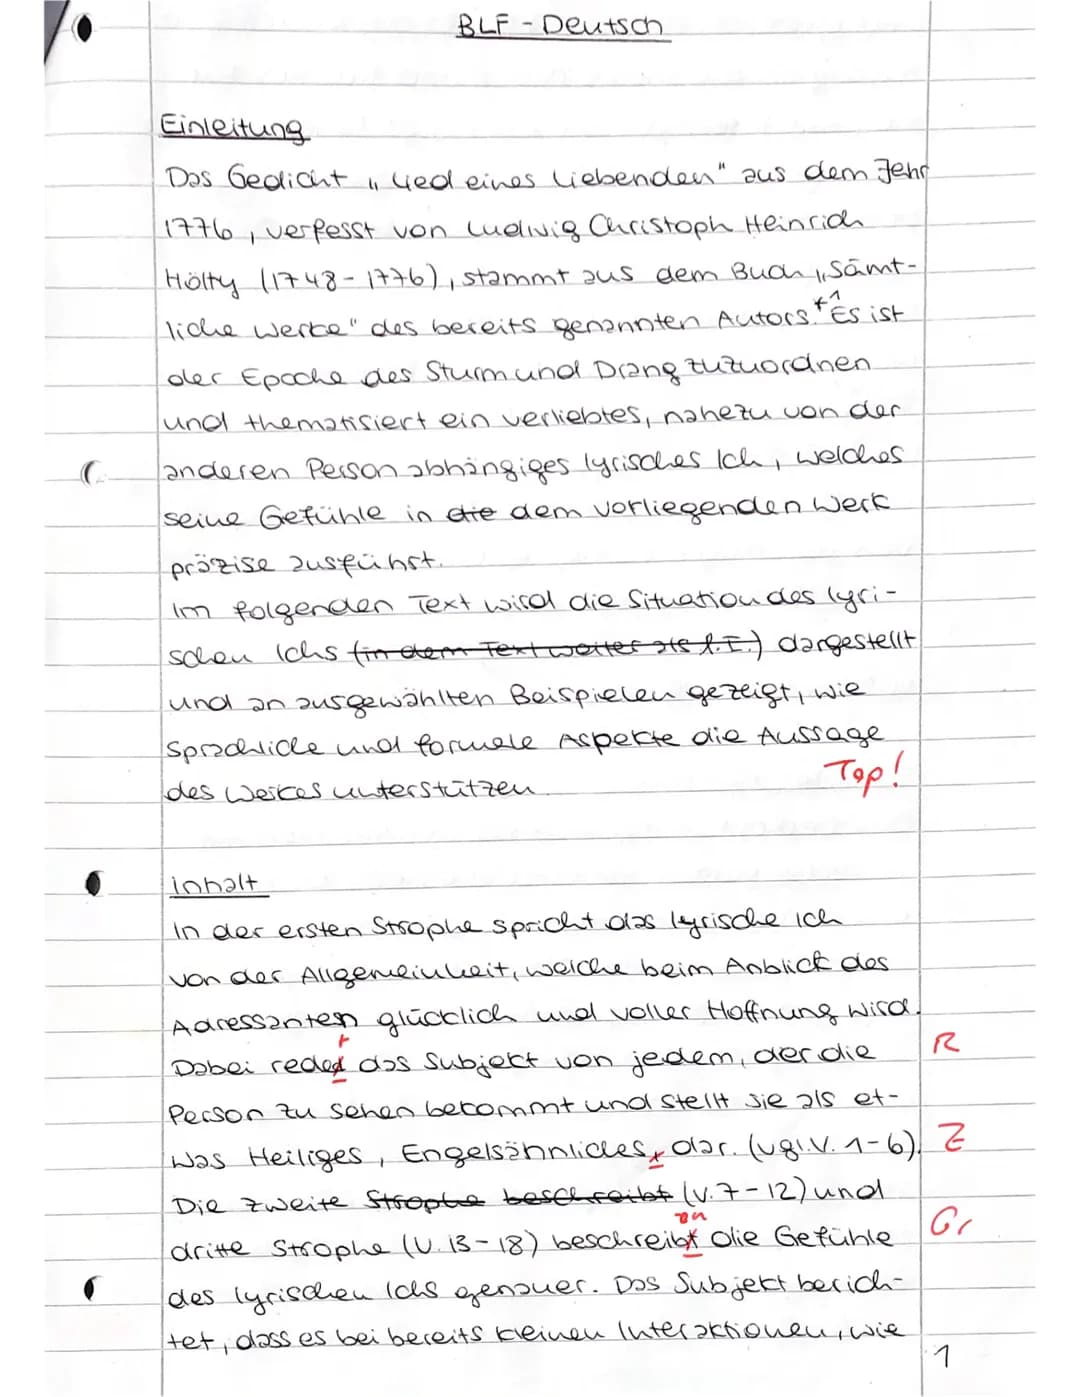 BLF - Deutsch
Einleitung
Das Gedicht „Lied eines Liebenden" aus dem Jahr
1776, verfasst von Ludwig Christoph Heinrich
Hölty (1748-1776), stammt aus dem Buch „Sämt-
liche Werke" des bereits genannten Autors. *1 Es ist
der Epoche des Sturm und Drang zuzuordnen
und thematisiert ein verliebtes, nahezu von der
anderen Person abhängiges lyrisches Ich, welches
seine Gefühle in die dem vorliegenden Werk
präzise ausführt.
Im folgenden Text wird die Situation des lyri-
schen Ichs (in dem Text weiter als l.I.) dargestellt
und an ausgewählten Beispielen gezeigt, wie
sprachliche und formale Aspekte die Aussage
des Werkes unterstützen.
Top!
Inhalt
In der ersten Strophe spricht das lyrische Ich
von der Allgemeinheit, welche beim Anblick des
Adressanten glücklich und voller Hoffnung wird.
Dabei reded t das Subjekt von jedem, der die R
Person zu sehen bekommt und stellt sie als et-
was Heiliges, Engelsähnliches, dar. (vgl. V. 1-6). Z
Die zweite Strophe beschreibt (V. 7-12) und
dritte Strophe (V. 13-18) beschreibt en die Gefühle Gr
des lyrischen Ichs genauer. Das Subjekt berich-
tet, dass es bei bereits kleinen Interaktionen, wie
1